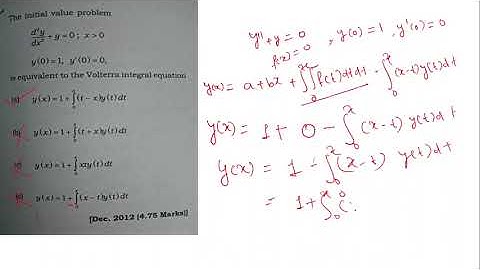 The initial value problem
d²y/dx² + y = 0 ; x > 0
y(0) = 1, y'(0) = 0,
is equivalent to the Volterra integral equation
y(x) = 1 + ∫₀ˣ (t − x) y(t) dt
y(x) = 1 + ∫₀ˣ (t + x) y(t) dt
y(x) = 1 + ∫₀ˣ xty(t) dt
y(x) = 1 + ∫₀ˣ (x − t) y(t) dt
[Dec. 2012 (4.75 Marks)]
y'' + y = 0 , y(0) = 1 , y'(0) = 0
f(x) = 0
y(x) = a + bx + ∫₀ˣ∫₀ˣ f(t) dt dt − ∫₀ˣ (x-t) y(t) dt
y(x) = 1 + 0 − ∫₀ˣ (x-t) y(t) dt
y(x) = 1 − ∫₀ˣ (x-t) y(t) dt
= 1 + ∫₀ˣ (